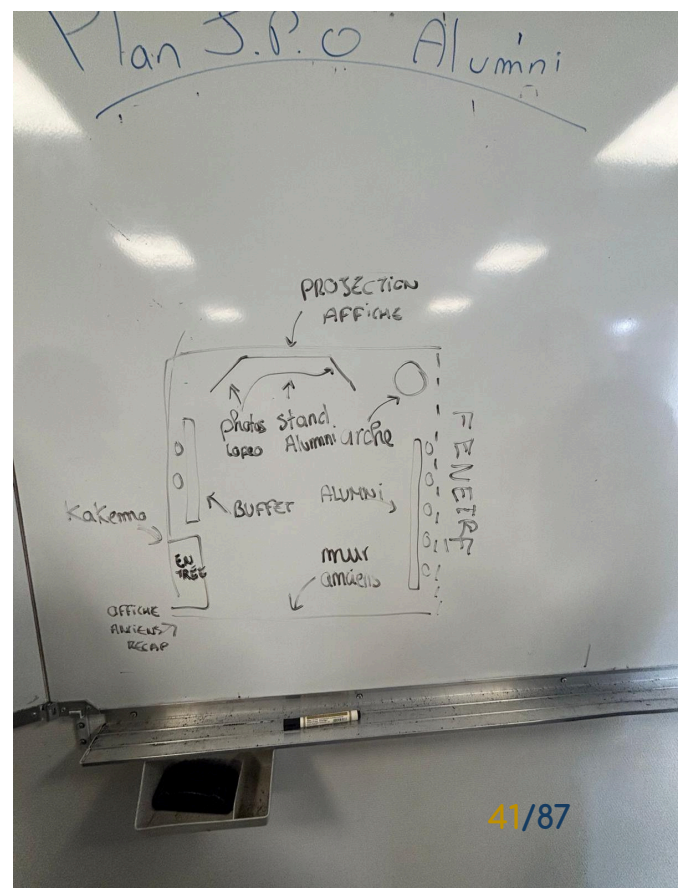 Plan J.P.O Alumni
PROJECTION
AFFICHE
photos
stand
Alumni
arche
FENETRE
BUFFET
ALUMNI
Kakemno
EN
TRÉE
mur
anciens
AFFICHE
ANCIENS
RECAP
41/87